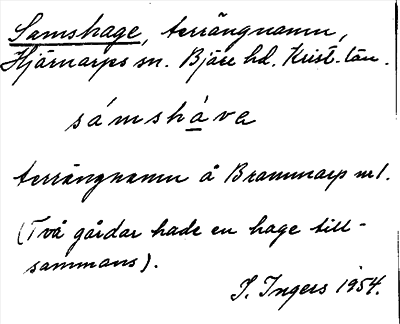 Samshage, terrängnamn,
Hjärnarps sn. Bjäre hd. Krist. län.
sámsháva
terrängnamn å Brammarp nr 1.
(Två gårdar hade en hage till-
sammans).
I. Ingers 1954.